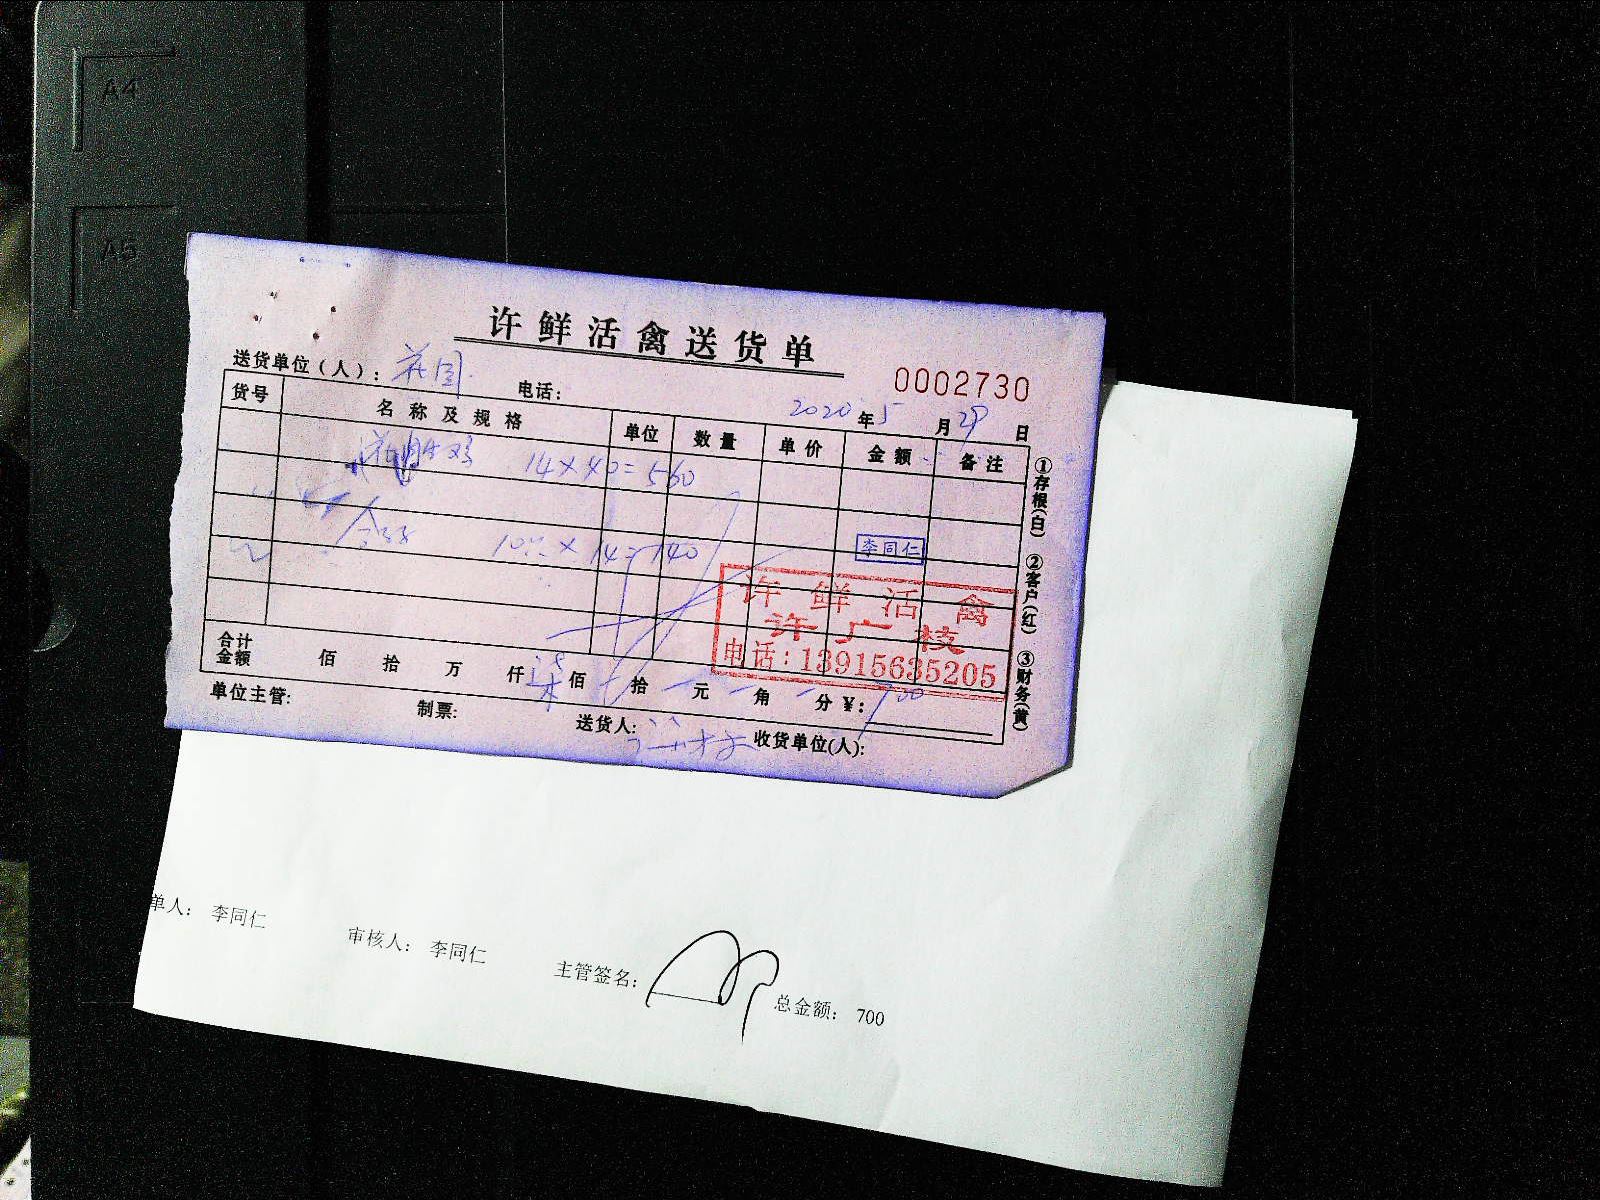 A4
A5
许鲜活禽送货单
0002730
送货单位(人): 花园 电话:
2020年5月29日
货号 名称及规格 单位 数量 单价 金额 备注
14×40=560
10只×14=140
李同仁
许鲜活禽
许广枝
电话:13915635205
合计金额 佰 拾 万 仟 柒佰 拾 元 角 分 ¥: 700
单位主管: 制票: 送货人: 收货单位(人):
①存根(白) ②客户(红) ③财务(黄)
单人: 李同仁 审核人: 李同仁 主管签名: 总金额: 700